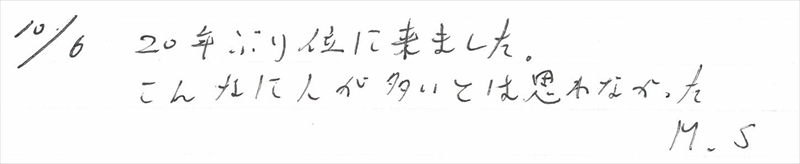 10/6 20年ぶり位に来ました。
こんなに人が多いとは思わなかった
M.S